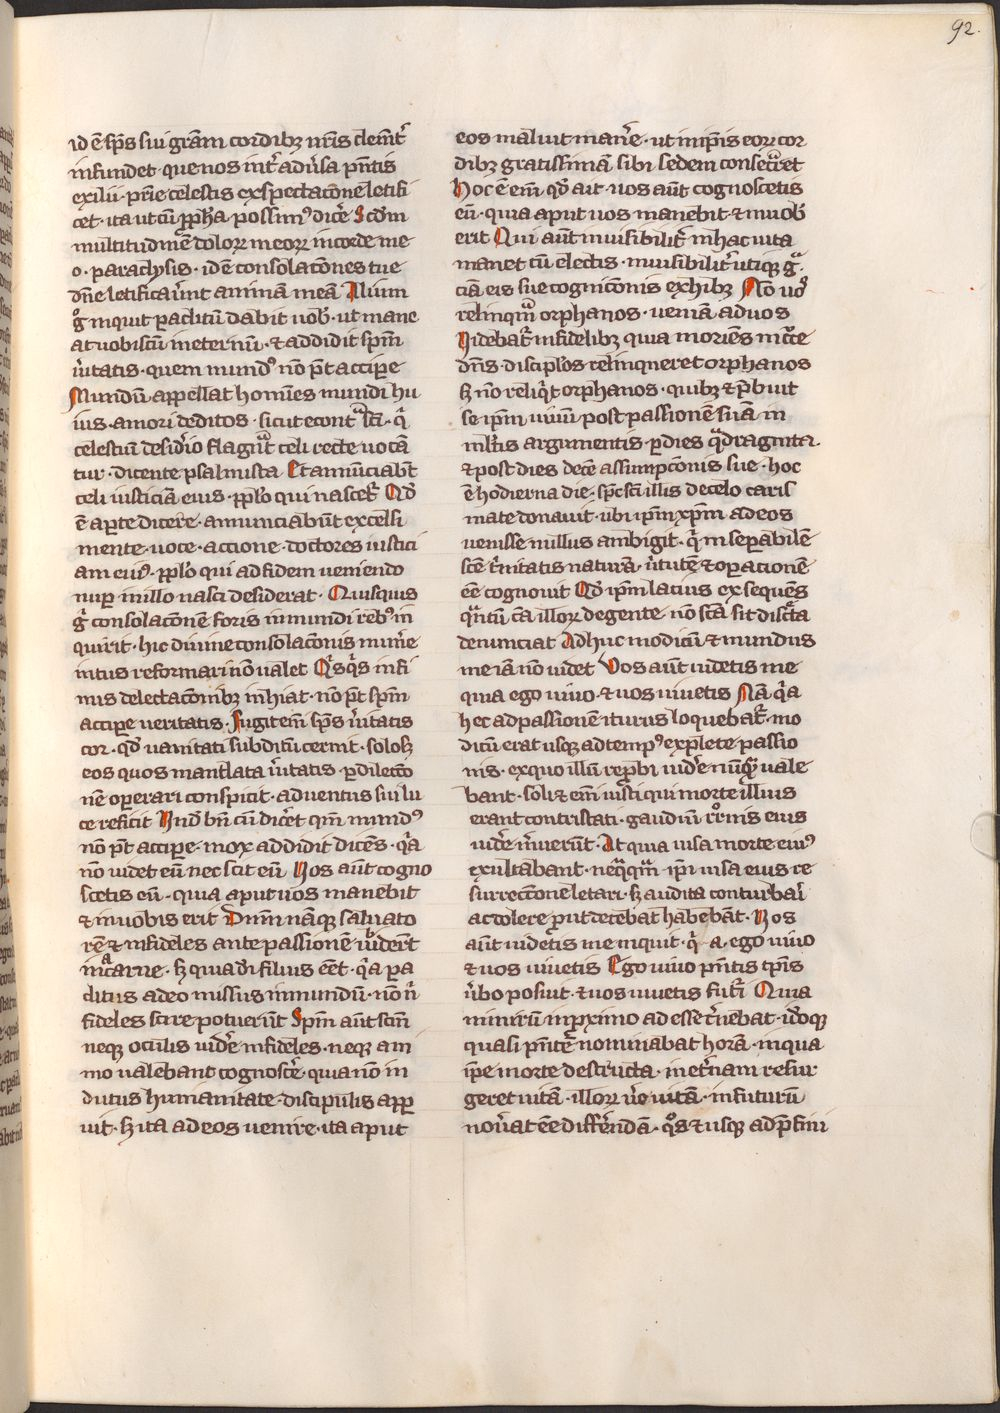 92.
id ē sp̄s sui grām cordibꝫ nr̄is clemt̄
infundet · que nos int̄ adu̾sa pn̄tis
exilii · pr̄ie celestis exspectacōne letifi
cet · ita ut cū ꝓph̄a possimꝰ dic̄e Scd̄m
multitudinē dolorꝝ meorꝝ in corde me
o · paraclysis · id ē consolacōnes tue
dn̄e letificaue̾int animā meā Alium
gͦ inquit paclitū dabit uob̾ · ut mane
at uobiscū in eternū · ⁊ addidit spm̄
ue̾itatis · quem mundꝰ nō pt̄ accipe
Mundū appellat homīes mundi hu
ius · amori deditos · sicut econtͣ sc̄i · qͥ
celestiū desid̾io flagͣnt celi recte uocā
tur · dicente psalmista Et annūciabt̄
celi iusticiā eius · pplo qui nascet̾ Qd̾
ē aperte dicere · annunciabūt excelsi
mente · uoce · accione · doctores iustici
am eiuꝰ · pplo qui ad fidem ueniendo
nup̄ in illo nasci desiderat · Quisquis
gͦ consolacōnem foris in mundi rebꝰ in
quirit · hic diuine consolacōnis mun̾e
intus reformari nō ualet Qͥsqͥs infi
mis delectacōnibꝫ inhiat · nō pt̄ spm̄
accipe ueritatis · Fugit em̄ sp̄s ue̾itatis
cor · qd̾ uanitati subditū cernit · solosꝫ
eos quos mandata ue̾itatis · p̱ dilectō
nē operari conspicit · aduentus sui lu
ce reficit Vnd̾ bn̄ cū dic̄et qm̄ mundꝰ
nō pt̄ accipe · mox addidit dicēs · qͥa
nō uidet eū nec scit eū Vos aūt cogno
scetis eū · quia aput uos manebit
⁊ in uobis erit Dnm̄ nāque saluato
rē ⁊ infideles ante passionē uid̾ent
in carne · sꝫ quia di̾ filius eēt · qͥa pa
clitus a deo missus in mundū · nō nͥ
fideles scire potuer̄t Spm̄ aūt scm̄
neqꝫ oculis uid̾e infideles · neqꝫ ani
mo ualebant cognosc̄e · qua nō in
dutus humanitate · discipulis appͣ
uit · sꝫ ita ad eos uenire · ita aput
eos maluit man̾e · ut in ip̄is eorꝝ cor
dibꝫ gratissimā sibi sedem consecͣret
Hoc ē em̄ qd̾ ait · uos aūt cognoscetis
eū · quia aput uos manebit ⁊ in uob̾
erit Qui aūt inuisibilit̾ in hac uita
manet cū electis · inuisibilit̾ utiqꝫ gͣ
ciā eis sue cognicōnis exhibꝫ Nō uoꝰ
relinqͣm orphanos · ueniā ad uos
Videbat̾ infidelibꝫ quia moriēs in cͣce
dn̄s · disciplos relinqueret orphanos
sꝫ nō reliqͥt orphanos · quibꝫ ⁊ p̄buit
se ip̄m uiuū · post passionē suā in
ml̾tis argumentis · p̱ dies qͣdraginta ·
⁊ post dies decē assumpcōnis sue · hoc
ē hodierna die · spc̄ sc̄i illis de celo caris
mate donauit · ubi ip̄m xp̄m ad eos
uenisse nullus ambigit · qͥ inseparabilē
scē t̾nitatis naturā · u̾tutē ⁊ operacionē
eē cognouit Qd̾ ip̄m lacius exsequēs
qͣntū cā illorꝝ degente · nō scā sit disct̄a
denunciat Adhuc modicū ⁊ mundus
me iā nō uidet Vos aūt uidetis me
quia ego uiuo · ⁊ uos uiuetis Nā qͥa
hec ad passionē iturus loquebat̾ · mo
dicū erat usqꝫ ad tempꝰ explete passio
nis · ex quo illū rep̱bi uid̾e nūqͣ uale
bant · Soli ⁊ em̄ iusti qui morte illius
erant contristati · gaudiū rr̄onis eius
uid̾e m̾uerūt · At quia uisa morte eiuꝰ
exultabant · neqͣqͣm ip̄i uisa eius re
surrectōne letari · sꝫ audita conturbari
ac dolere put decebat habebāt · Vos
aūt uidetis me inquit · qͥ a · ego uiuo
⁊ uos uiuetis Ego uiuo pn̄tis tp̄is
u̾bo posuit · ⁊ uos uiuetis fut̾i Quia
nimirū in ꝓximo adesse c̾nebat · id̾oqꝫ
quasi pn̄tē nominabat horā · in qua
ip̄e morte destructa · in et̾nam resur
geret uitā · illorꝝ u̾o uitā · in futurū
nou̾at eē differ̄ndā · qͦs ⁊ usqꝫ ad p̄fini